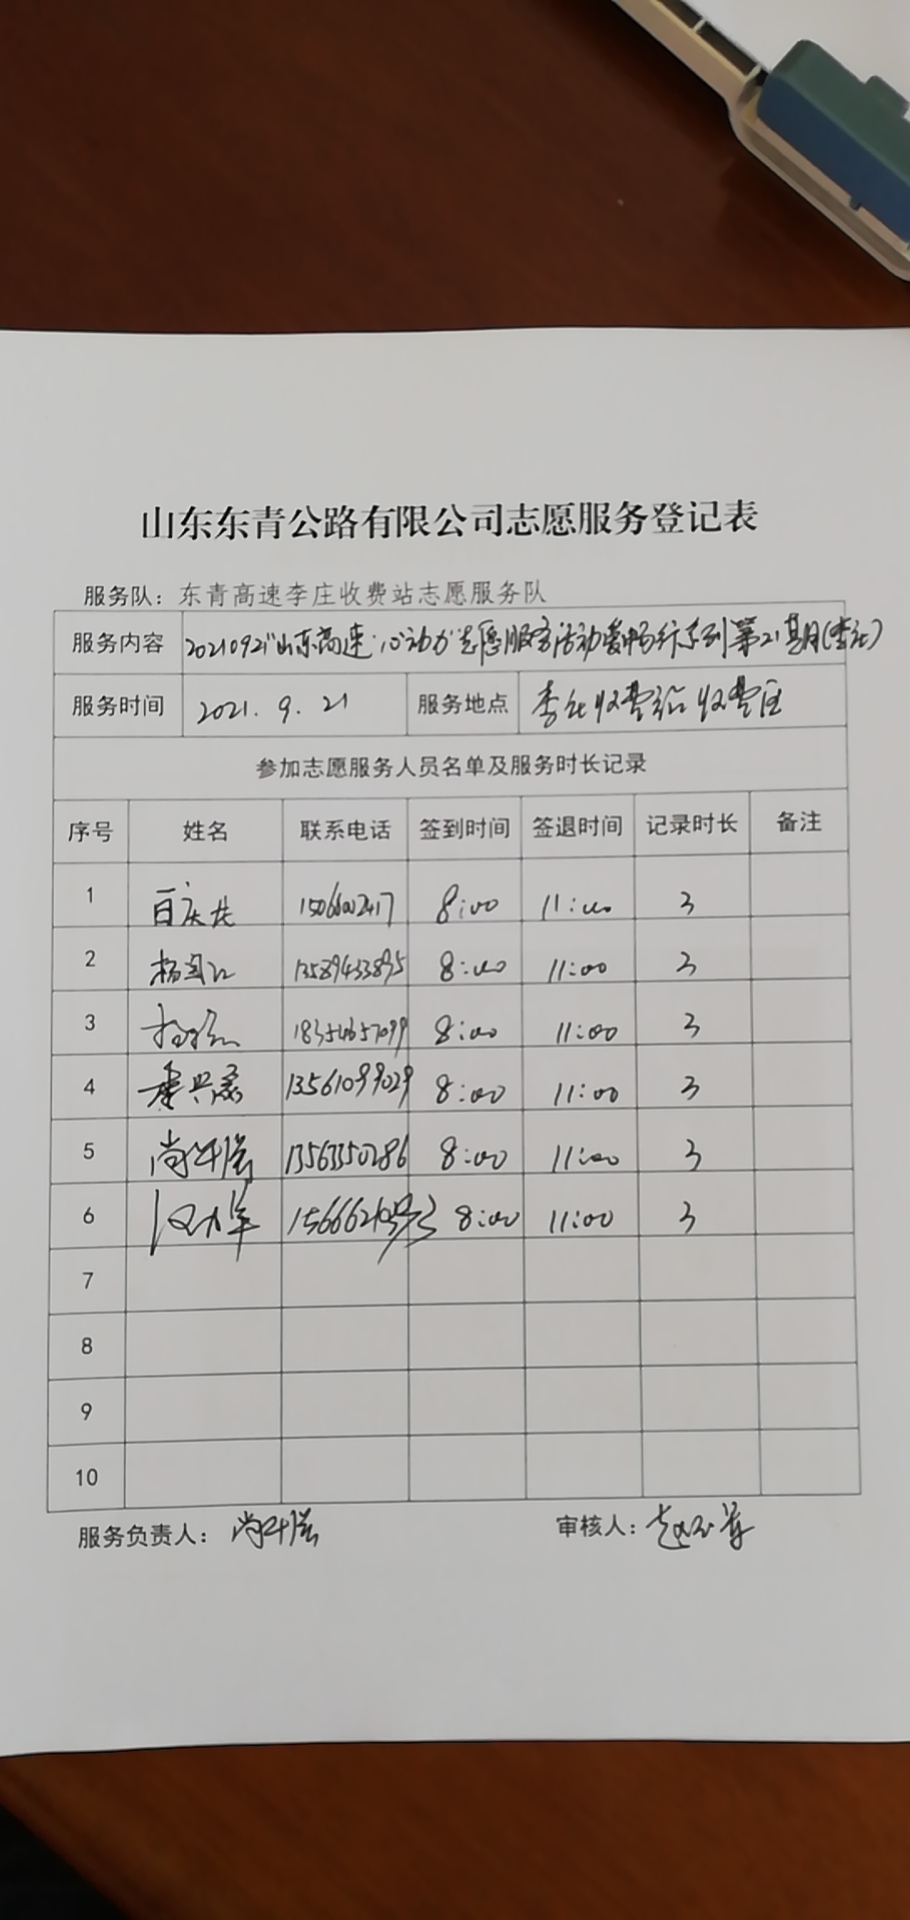 山东东青公路有限公司志愿服务登记表
服务队：东青高速李庄收费站志愿服务队
服务内容 20210921"山东高速·心动力"志愿服务活动爱畅行系列第21期(李庄)
服务时间 2021.9.21 服务地点 李庄收费站收费区
参加志愿服务人员名单及服务时长记录
序号 姓名 联系电话 签到时间 签退时间 记录时长 备注
1 8:00 11:00 3
2 13589433895 8:00 11:00 3
3 18354657099 8:00 11:00 3
4 13561099029 8:00 11:00 3
5 13563350286 8:00 11:00 3
6 8:00 11:00 3
7
8
9
10
服务负责人： 审核人：